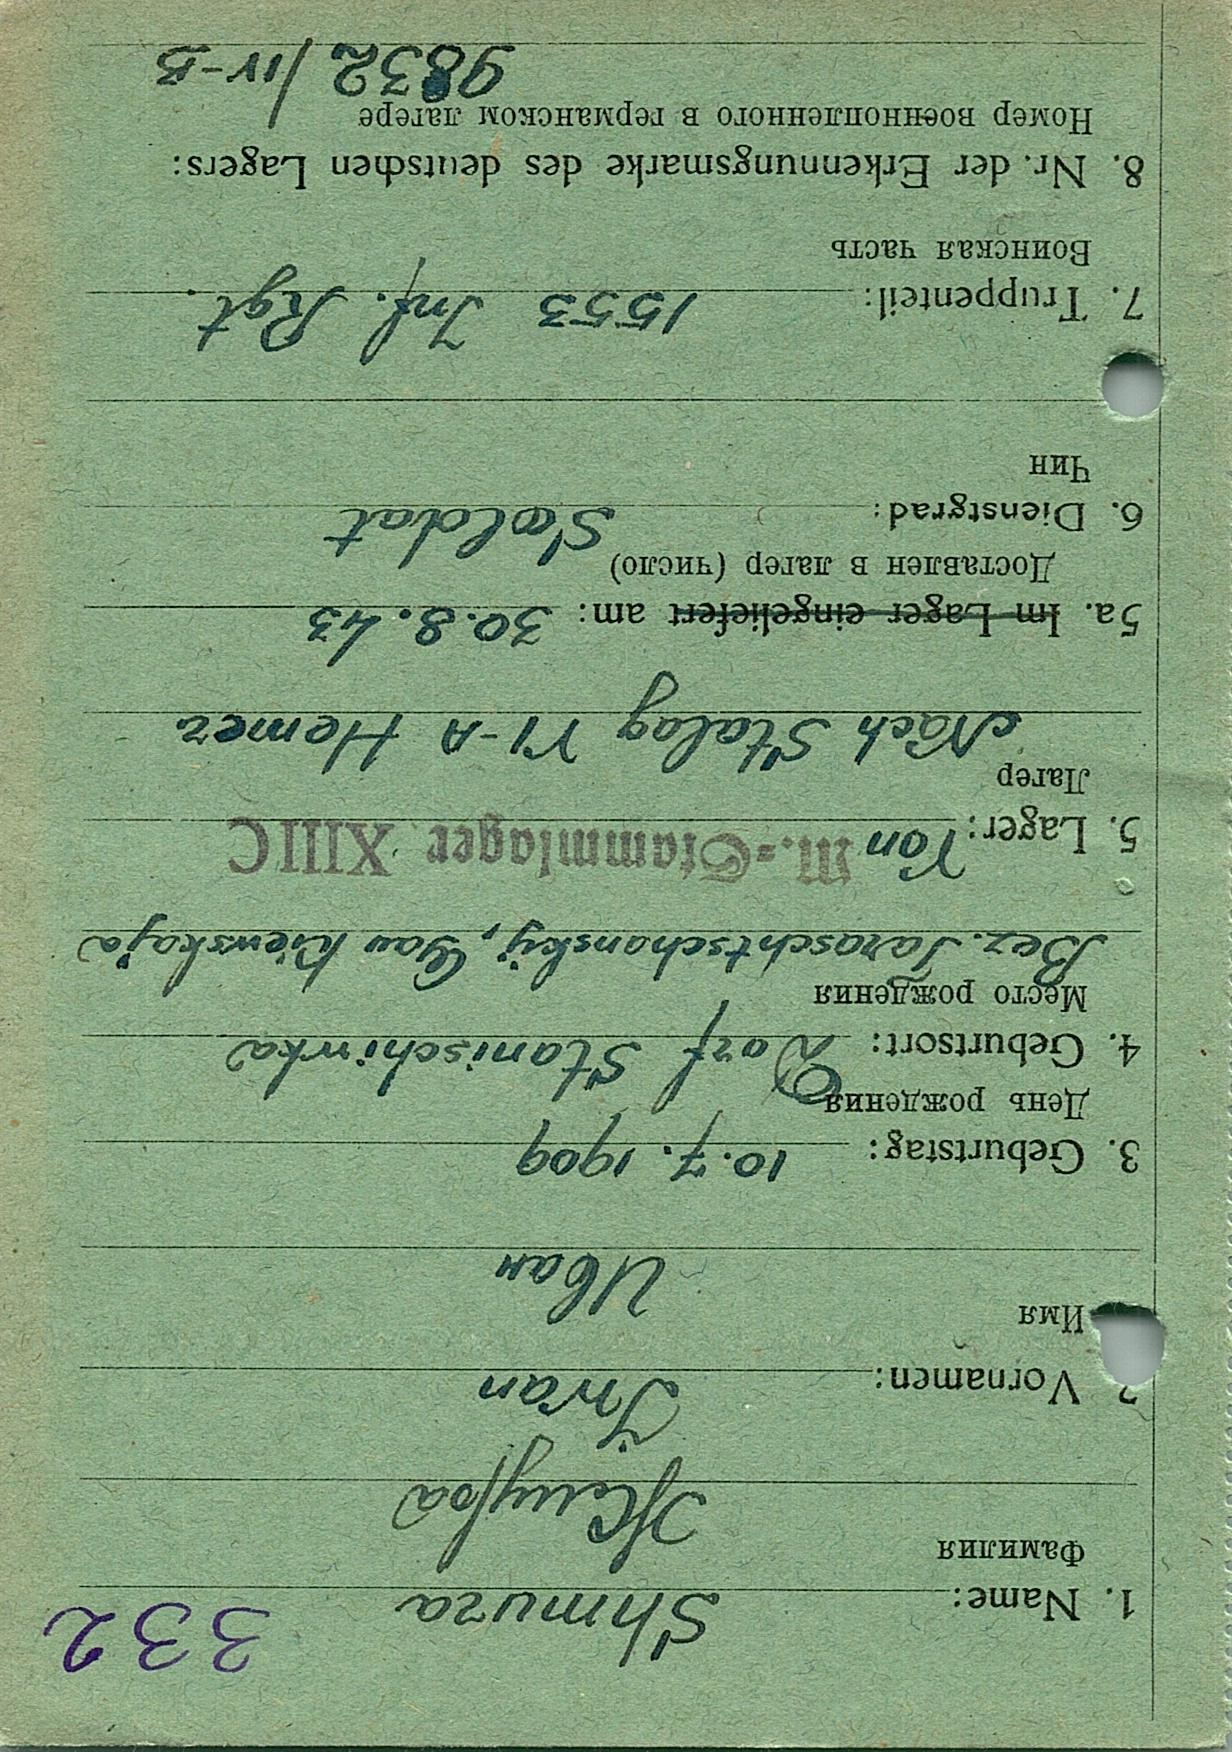 332
1. Name: Shmura
Фамилия
Жмура
2 Vornamen: Iwan
Имя
Иван
3. Geburtstag: 10.7.1909
День рождения
4. Geburtsort: Dorf Stanischiwka
Место рождения
Bez. Taraschtschanskij, Gau Kiewskaja
5. Lager: Von M.-Stammlager XIII C
Лагер
Nach Stalag VI-A Hemer
5a. Im Lager eingeliefert am: 30.8.43
Доставлен в лагер (число)
6. Dienstgrad: Soldat
Чин
7. Truppenteil: 1553 Inf. Rgt.
Воинская часть
8. Nr. der Erkennungsmarke des deutschen Lagers:
Номер военнопленного в германском лагере
9832/IV-B